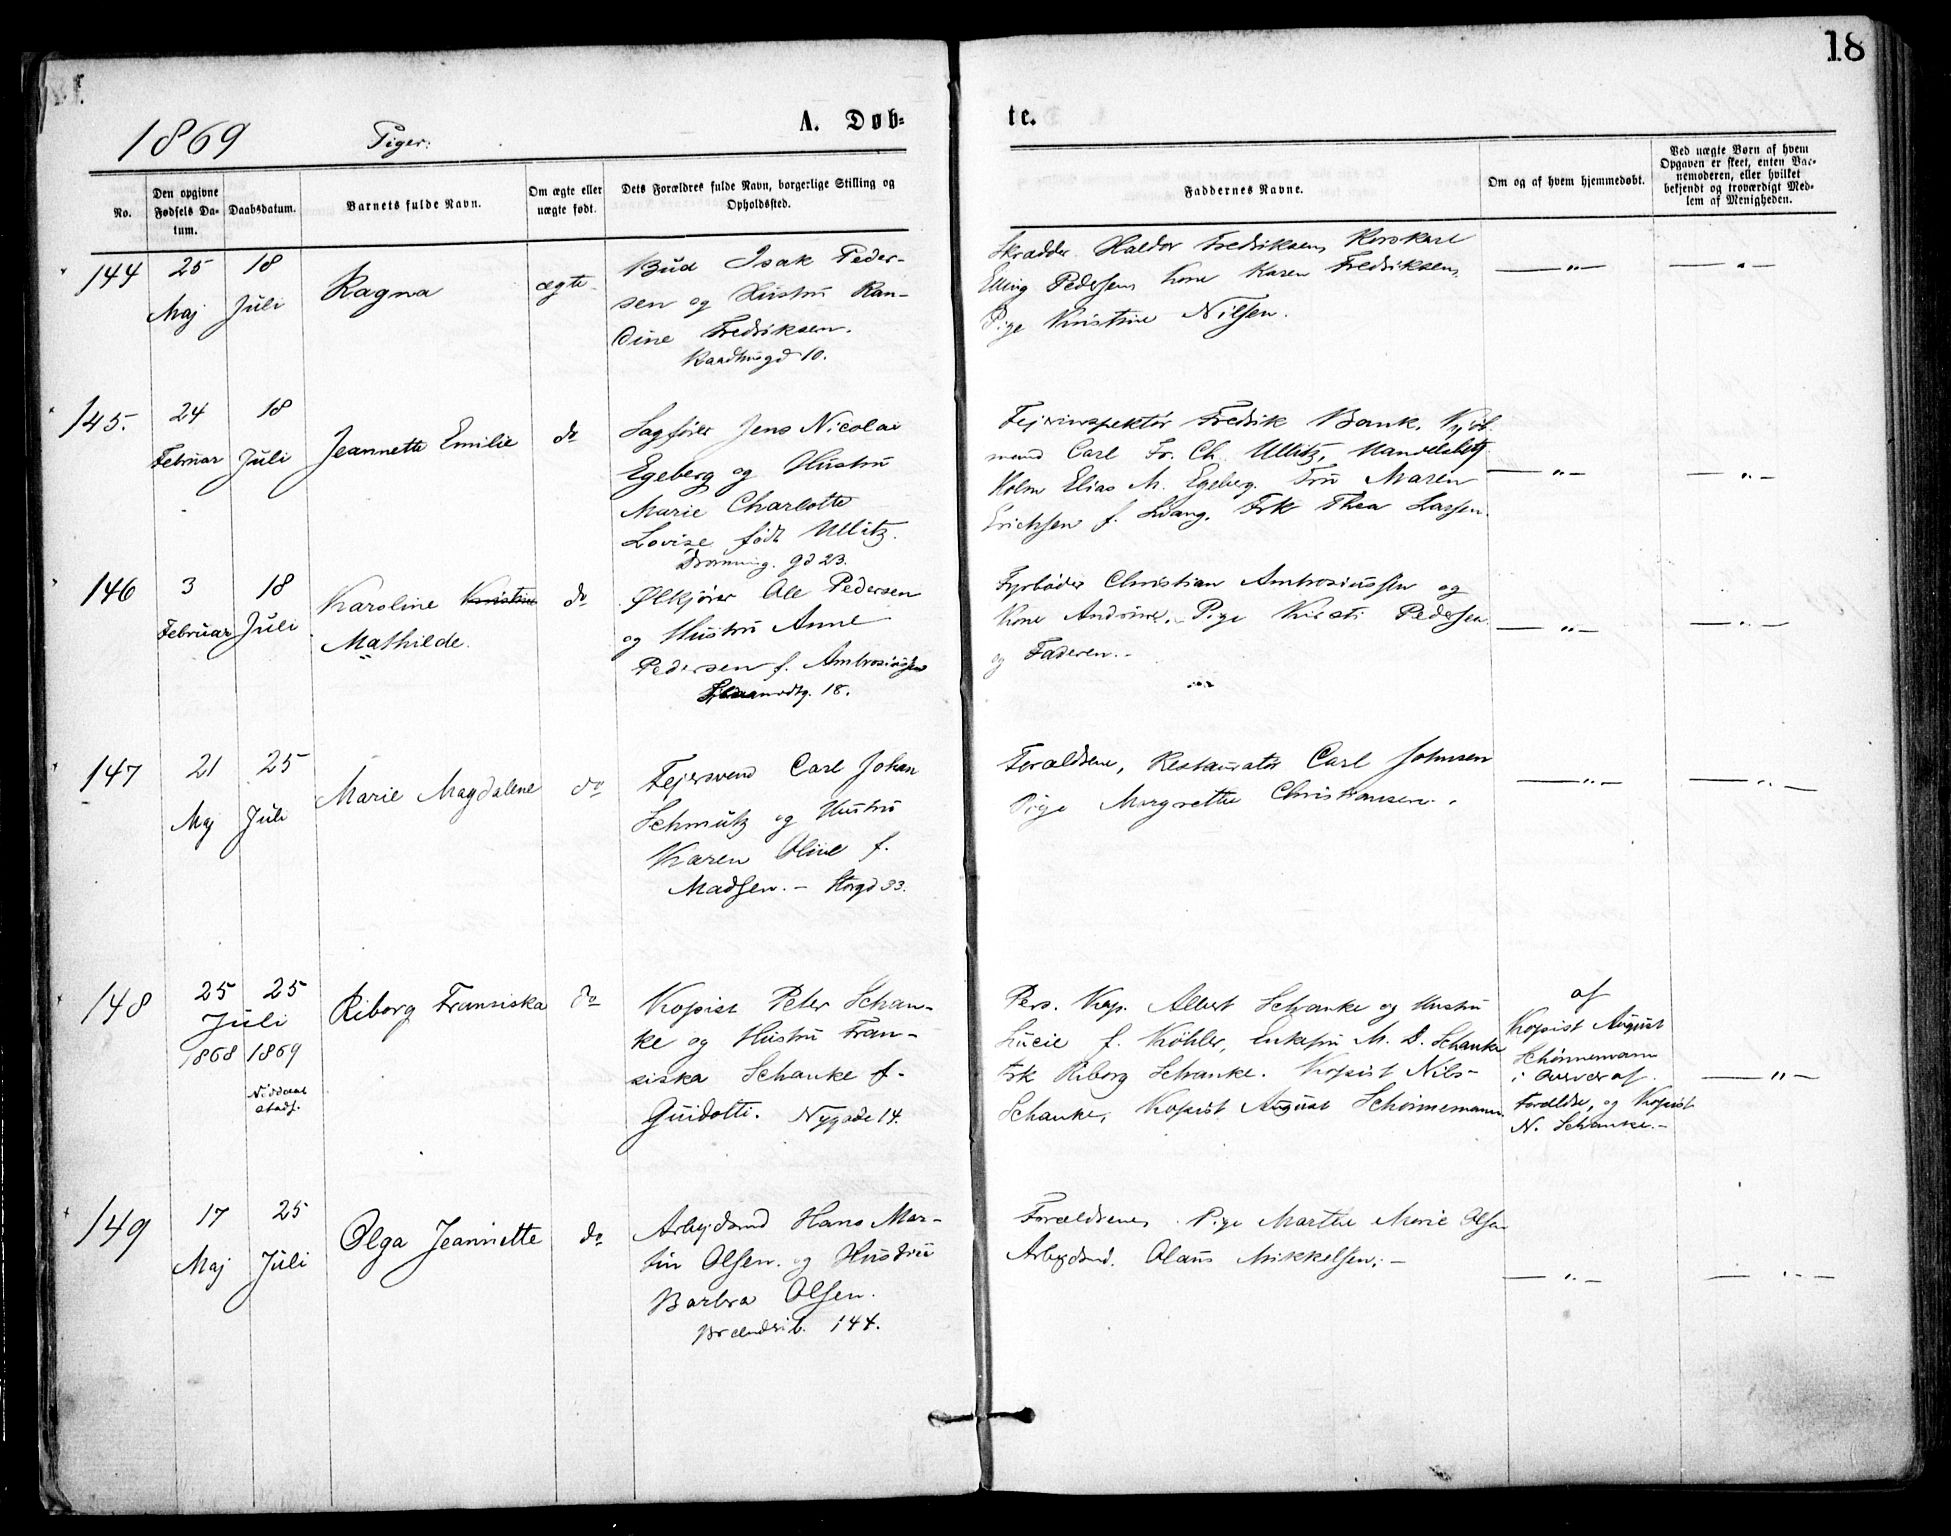 18
1869 Piger: A. Døb= te.
No.
Den opgivne Fødsels Da-tum.
Daabsdatum.
Barnets fulde Navn.
Om ægte eller uægte født.
Dets Forældres fulde Navn, borgerlige Stilling og Opholdssted.
Faddernes Navne.
Om og af hvem hjemmedøbt.
Ved uægte Børn af hvem Opgaven er skeet, enten Bar-nemoderen, eller hvilket bekjendt og troværdigt Med-lem af Menigheden.
144
25 Maj
18 Juli
Ragna
ægte
Bud Isak Peder-
sen og Hustru Ran-
dine Fredriksen.
Raadhusgd 10.
Skrædder Haldor Fredriksen,
Elling Pedersen, Kone Karen Fredriksen,
Pige Kristine Nilsen.
— " —
— " —
145.
24 Februar
18 Juli
Jeannette Emilie
do
Sagfører Jens Nicolai
Egeberg og Hustru
Marie Charlotte
Lovise født Ullitz.
Dronning. gd 23.
Fejerinspektør Fredrik Bank, Kjøb-
mand Carl Fr. Ch. Ullitz, Handelsbetj.
Holm Elias M. Egeberg. Fru Maren
Erichsen f. Svang, Frk Thea Larsen.
— " —
— " —
146
3 Februar
18 Juli
Karoline Kristine
Mathilde.
do
Ølkjører Ole Pedersen
og Hustru Anne
Pedersen f. Ambrosiussen
18.
Fyrbøder Christian Ambrosiussen og
Kone Andrine, Pige Kirsti Pedersen
og Faderen.-
— " —
— " —
147
21 Maj
25 Juli
Marie Magdalene
do
Fejersvend Carl Johan
Schmütz og Hustru
Karen Oline f.
Madsen. - Storgd 33.
Forældrene, Restauratør Carl Johnsen
Pige Margrethe Christiansen.
— " —
— " —
148
25 25
Juli
1868 1869
Riborg Fransiska
do
Kopist Peter Schan-
ke og Hustru Fran-
siska Schanke f.
Guidotti. Nygade 14.
Pers. Kap. Albert Schanke og Hustru
Lucie f. Köhler, Enkefru M. D. Schanke
Frk Riborg Schanke. Kopist Nils
Schanke, Kopist August Schönnemann.
af
Kopist August
Schönnemann
i Overvær af
Forældre, og Kopist
N. Schanke.-
— " —
149
17 Maj
25 Juli
Olga Jeannette
do
Arbejdsmd Hans Mar-
tin Olsen. og Hustru
Barbra Olsen.
144.
Forældrene, Pige Marthe Marie Olsen
Arbejdsmd. Olaus Mikkelsen.-
— " —
— " —